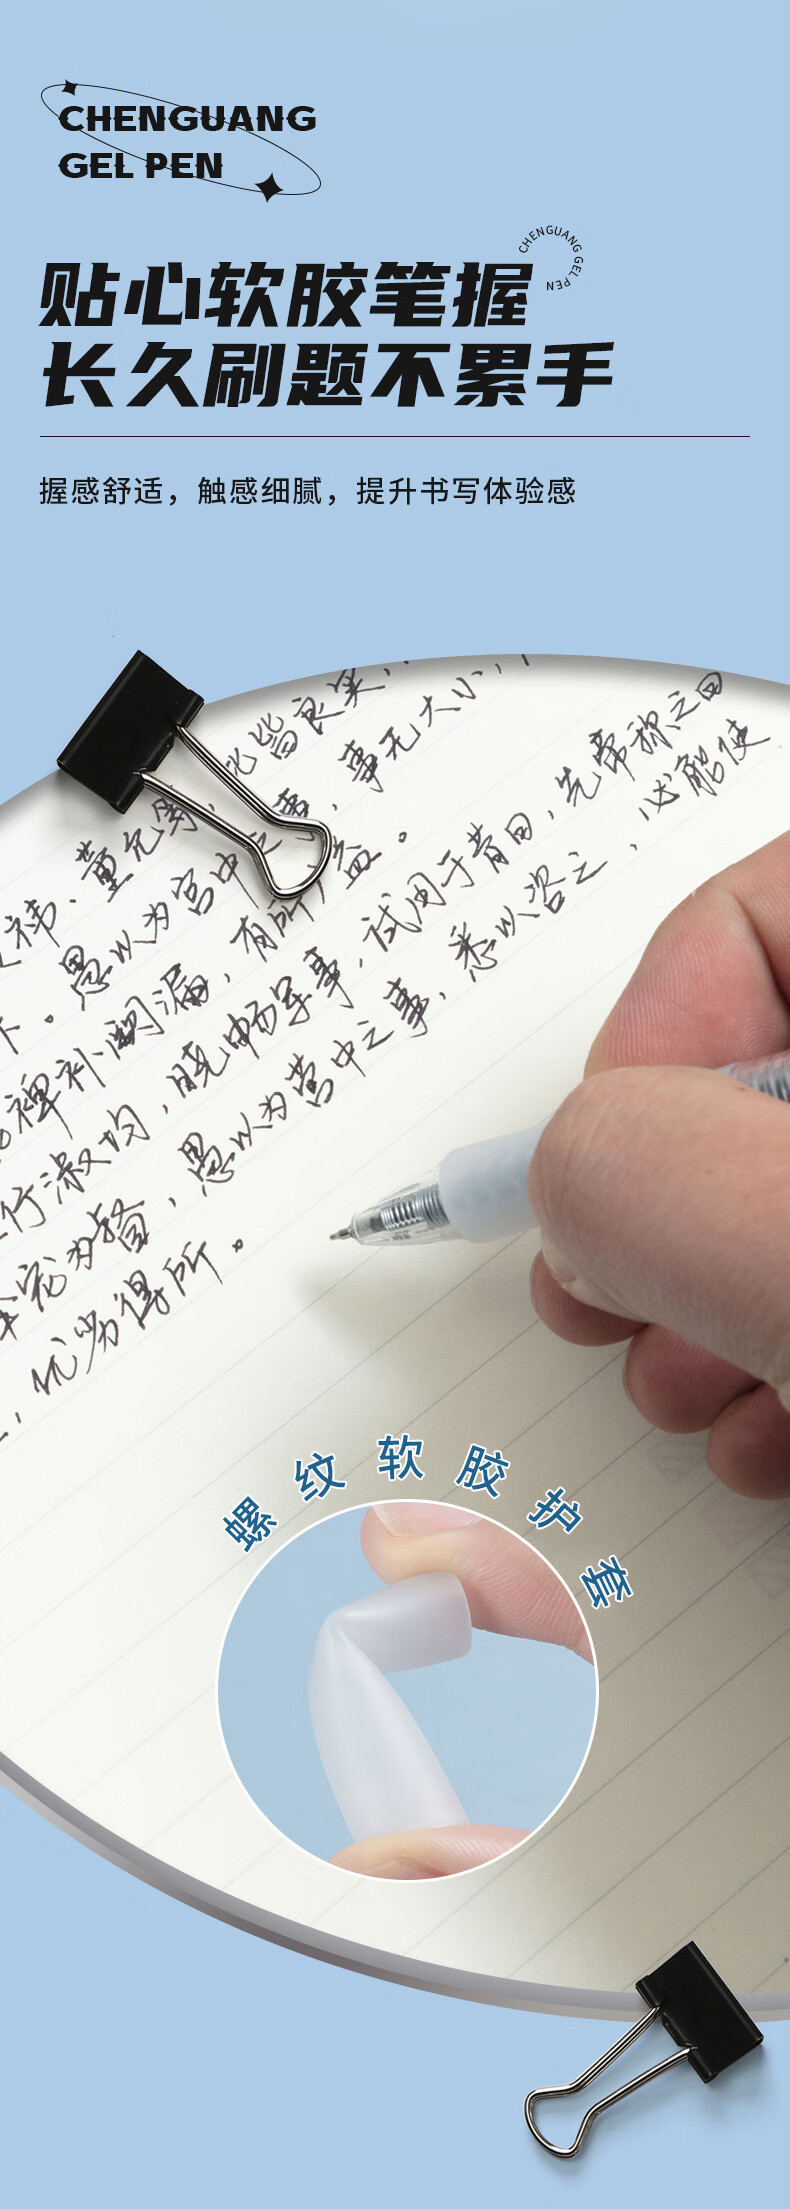 CHENGUANG
GEL PEN
CHENGUANG GEL PEN
贴心软胶笔握
长久刷题不累手
握感舒适，触感细腻，提升书写体验感
此皆良实，
祎、董允等，
事无大小，
下。愚以为宫中之事，
裨补阙漏，有所广益。
行淑均，晓畅军事，试用于昔日，先帝称之曰
宠为督，愚以为营中之事，悉以咨之，必能使
，优劣得所。
螺纹软胶护套